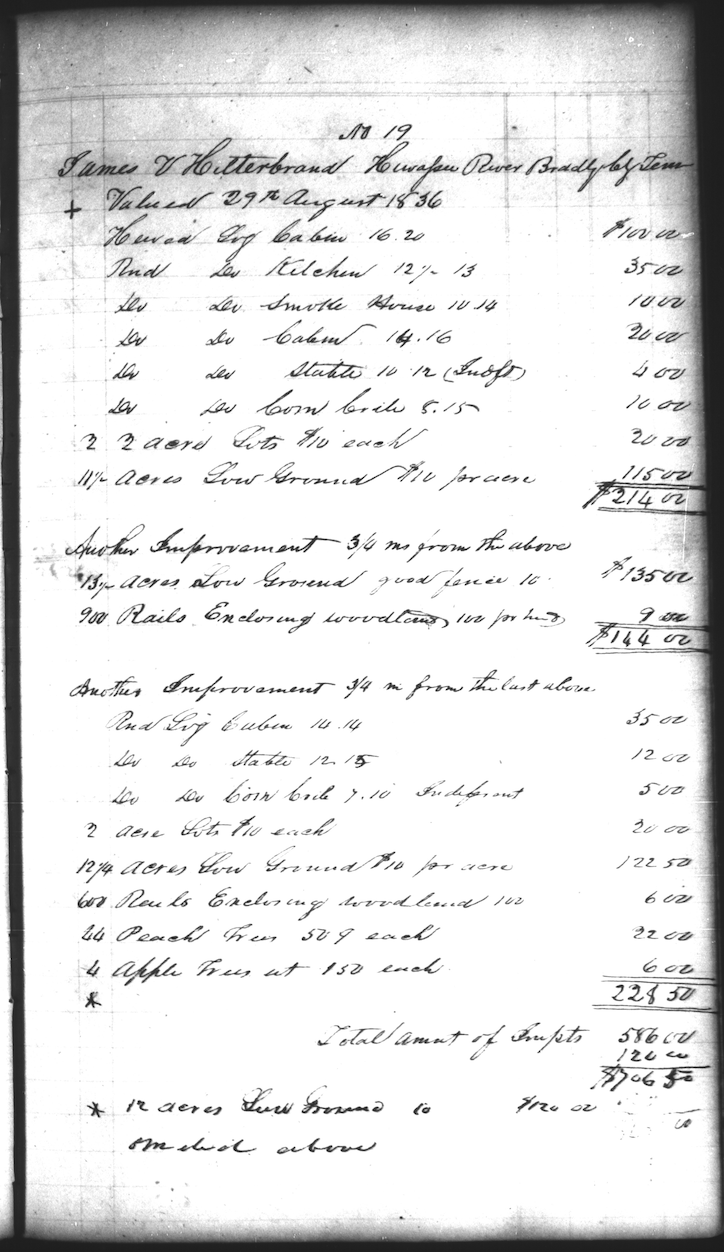 No 19
James V Hilterbrand Hiwassee River Bradly Cty Tenn
+ Valued 29th August 1836
Hewed Log Cabin 16.20 $100 00
Rnd Do Kitchen 12½ 13 35 00
Do Do Smoke House 10.14 10 00
Do Do Cabin 14.16 20 00
Do Do Stable 10 12 (Indft) 4 00
Do Do Corn Crib 8.15 10 00
2 2 acre Lots $10 each 20 00
11½ Acres Low Ground $10 pr acre 115 00
$214 00
Another Improvement 3/4 ms from the above
13½ Acres Low Ground good fence 10 $135 00
900 Rails Enclosing woodland 100 pr hund 9 00
$144 00
Another Improvement 3/4 m from the last above
Rnd Log Cabin 14.14 35 00
Do Do Stable 12.15 12 00
Do Do Corn Crib 7.10 Indiferent 5 00
2 acre Lots $10 each 20 00
12¼ Acres Low Ground $10 pr acre 122 50
600 Rails Enclosing woodland 100 6 00
44 Peach Trees 50 each 22 00
4 Apple Trees at 150 each 6 00
* 228 50
Total amnt of Impts 586 00
120 00
$706 50
* 12 acres Low Ground 10 $120 00
omited above